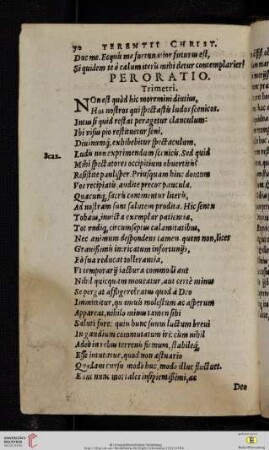 70 TERENTII CHRIST.
Duc me. Ecquis me fortunatior futurus est,
Si quidem te ò cælum iterũ mihi detur contemplarier?
PERORATIO.
Trimetri.
NOn est quòd hic moremini diutius,
Hos nostros qui spectastis ludos scenicos.
Intus si quid restat peragetur clanculum:
Ibi visus pio restituetur seni,
Diuinumq́; exhibebitur spectaculum,
Ludis non exprimendum scenicis. Sed quid
Mihi spectatores occipitium obuertitis?
Resistite paulisper. Priusquam hinc domum
Vos recipiatis, audite precor paucula.
Quæcunq; sacris continentur literis,
Ad nostram sunt salutem prodita. Hic senex
Tobias, inuictæ exemplar patientiæ,
Tot vndiq; circumseptus calamitatibus,
Nec animum despondens tamen quem non, licet
Grauissimis intricatum infortunijs,
Eò sua reducat tollerantia,
Vt temporarij iactura commodi aut
Nihil quicquam moueatur, aut certè minus
Se pergat affligere: atq; quod à Deo
Immittitur, quamuis molestum ac asperum
Appareat, nihilo minus tamen sibi
Saluti fore: quin hunc suum luctum breui
In gaudium commutatum iri: cùm nihil
Adeò in rebus terrenis firmum, stabileq́;
Esse intueatur, quod non æstuario
Quodam cursu modò huc, modò illuc fluctuet.
Deo